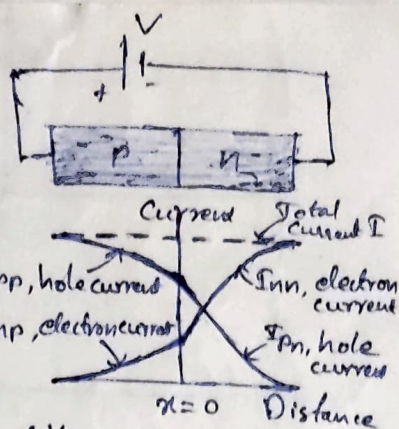 V
+ -
P n
Current Total
current I
pp, hole current Inn, electron
current
np, electron current Ipn, hole
current
x=0 Distance